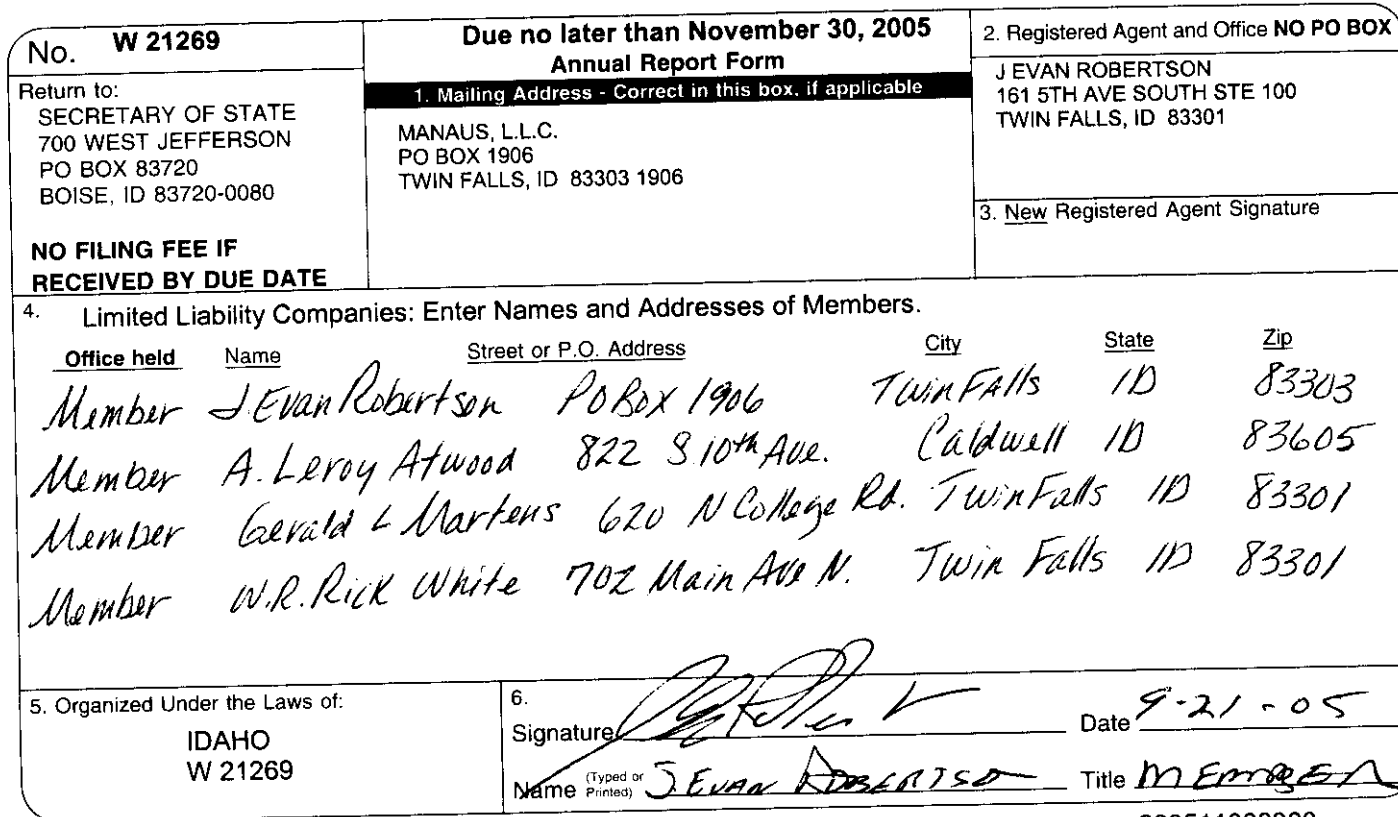 No. W 21269
Return to:
SECRETARY OF STATE
700 WEST JEFFERSON
PO BOX 83720
BOISE, ID 83720-0080
NO FILING FEE IF
RECEIVED BY DUE DATE
Due no later than November 30, 2005
Annual Report Form
1. Mailing Address - Correct in this box, if applicable
MANAUS, L.L.C.
PO BOX 1906
TWIN FALLS, ID 83303 1906
2. Registered Agent and Office NO PO BOX
J EVAN ROBERTSON
161 5TH AVE SOUTH STE 100
TWIN FALLS, ID 83301
3. New Registered Agent Signature
4. Limited Liability Companies: Enter Names and Addresses of Members.
Office held Name Street or P.O. Address City State Zip
Member J Evan Robertson PO Box 1906 Twin Falls ID 83303
Member A. Leroy Atwood 822 S 10th Ave. Caldwell ID 83605
Member Gerald L Martens 620 N College Rd. Twin Falls ID 83301
Member W.R. Rick White 702 Main Ave N. Twin Falls ID 83301
5. Organized Under the Laws of:
IDAHO
W 21269
6.
Signature Date 9-21-05
Name (Typed or Printed) J. EVAN ROBERTSO Title MEMBER